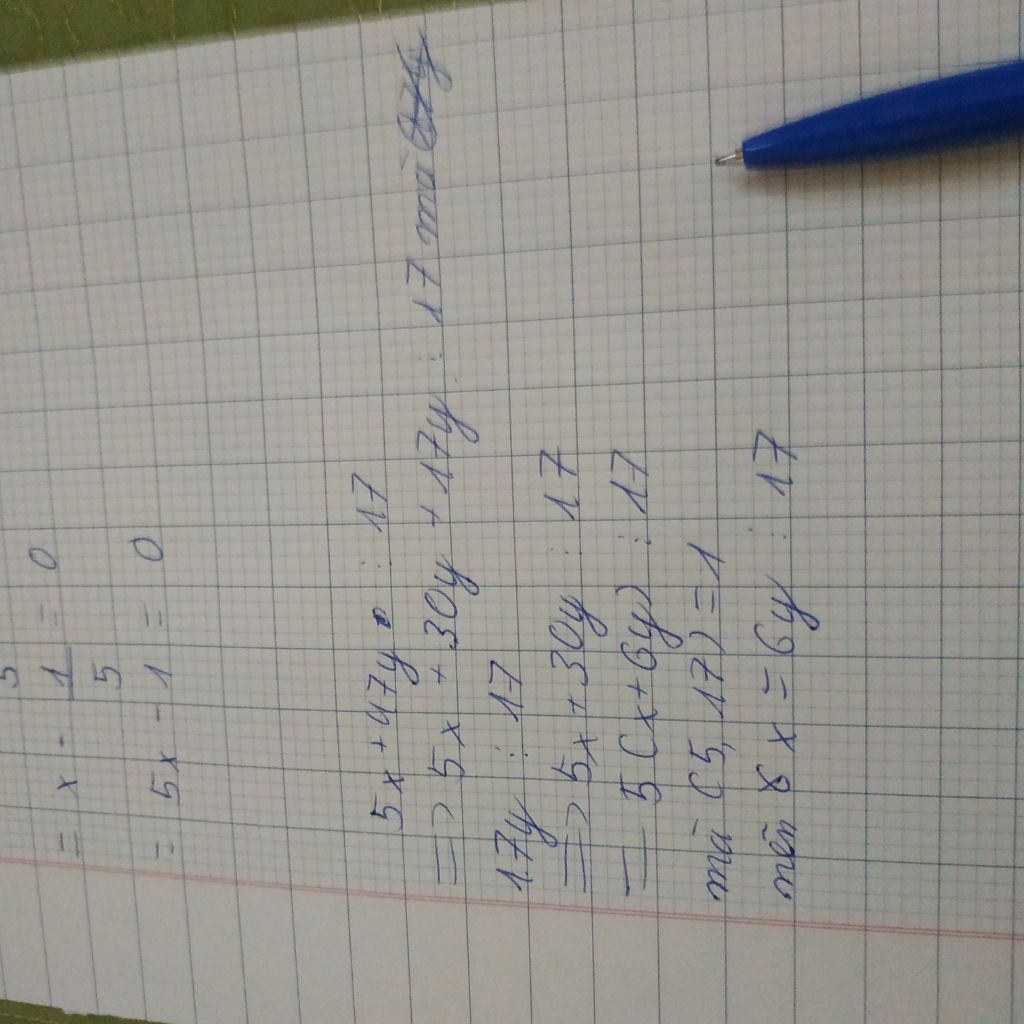 5
= x - 1 = 0
5
= 5x - 1 = 0
5x + 47y ⋮ 17
=> 5x + 30y + 17y ⋮ 17 mà
17y ⋮ 17
=> 5x + 30y ⋮ 17
= 5 (x + 6y) ⋮ 17
mà (5, 17) = 1
nên x = 6y ⋮ 17